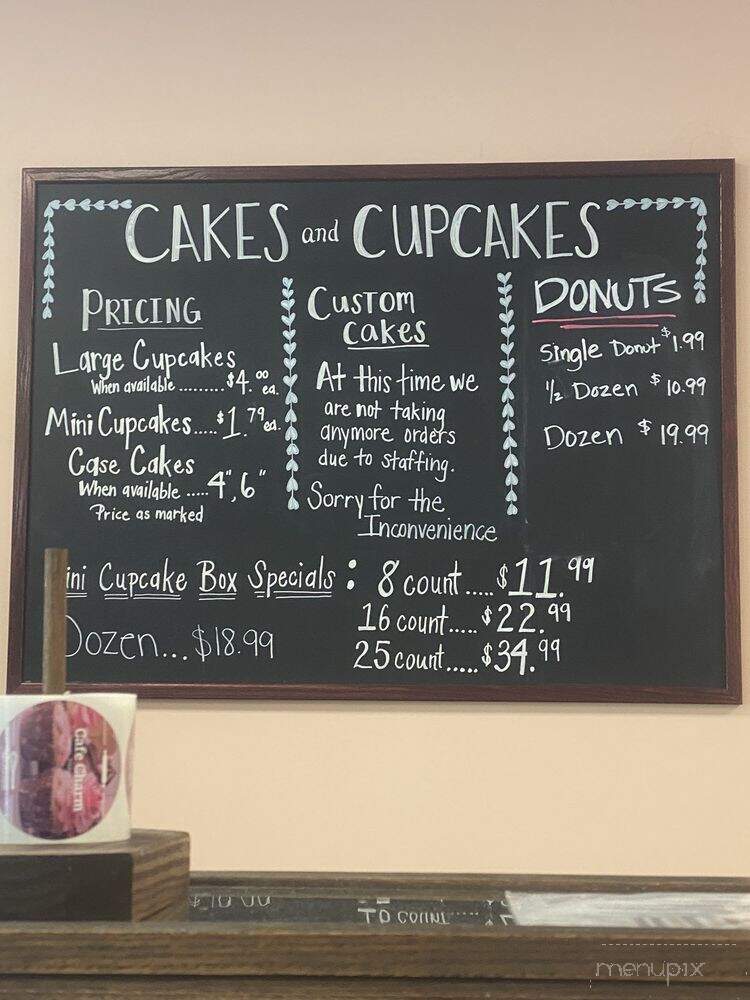 CAKES and CUPCAKES
PRICING
Large Cupcakes
When available.........$4.00 ea.
Mini Cupcakes.....$1.79 ea.
Case Cakes
When available.....4", 6"
Price as marked
Custom
Cakes
At this time we
are not taking
anymore orders
due to staffing.
Sorry for the
Inconvenience
DONUTS
Single Donut $1.99
1/2 Dozen $10.99
Dozen $19.99
ini Cupcake Box Specials:
Dozen...$18.99
8 count.....$11.99
16 count.....$22.99
25 count.....$34.99
Cafe Charm
COUNT
menupix